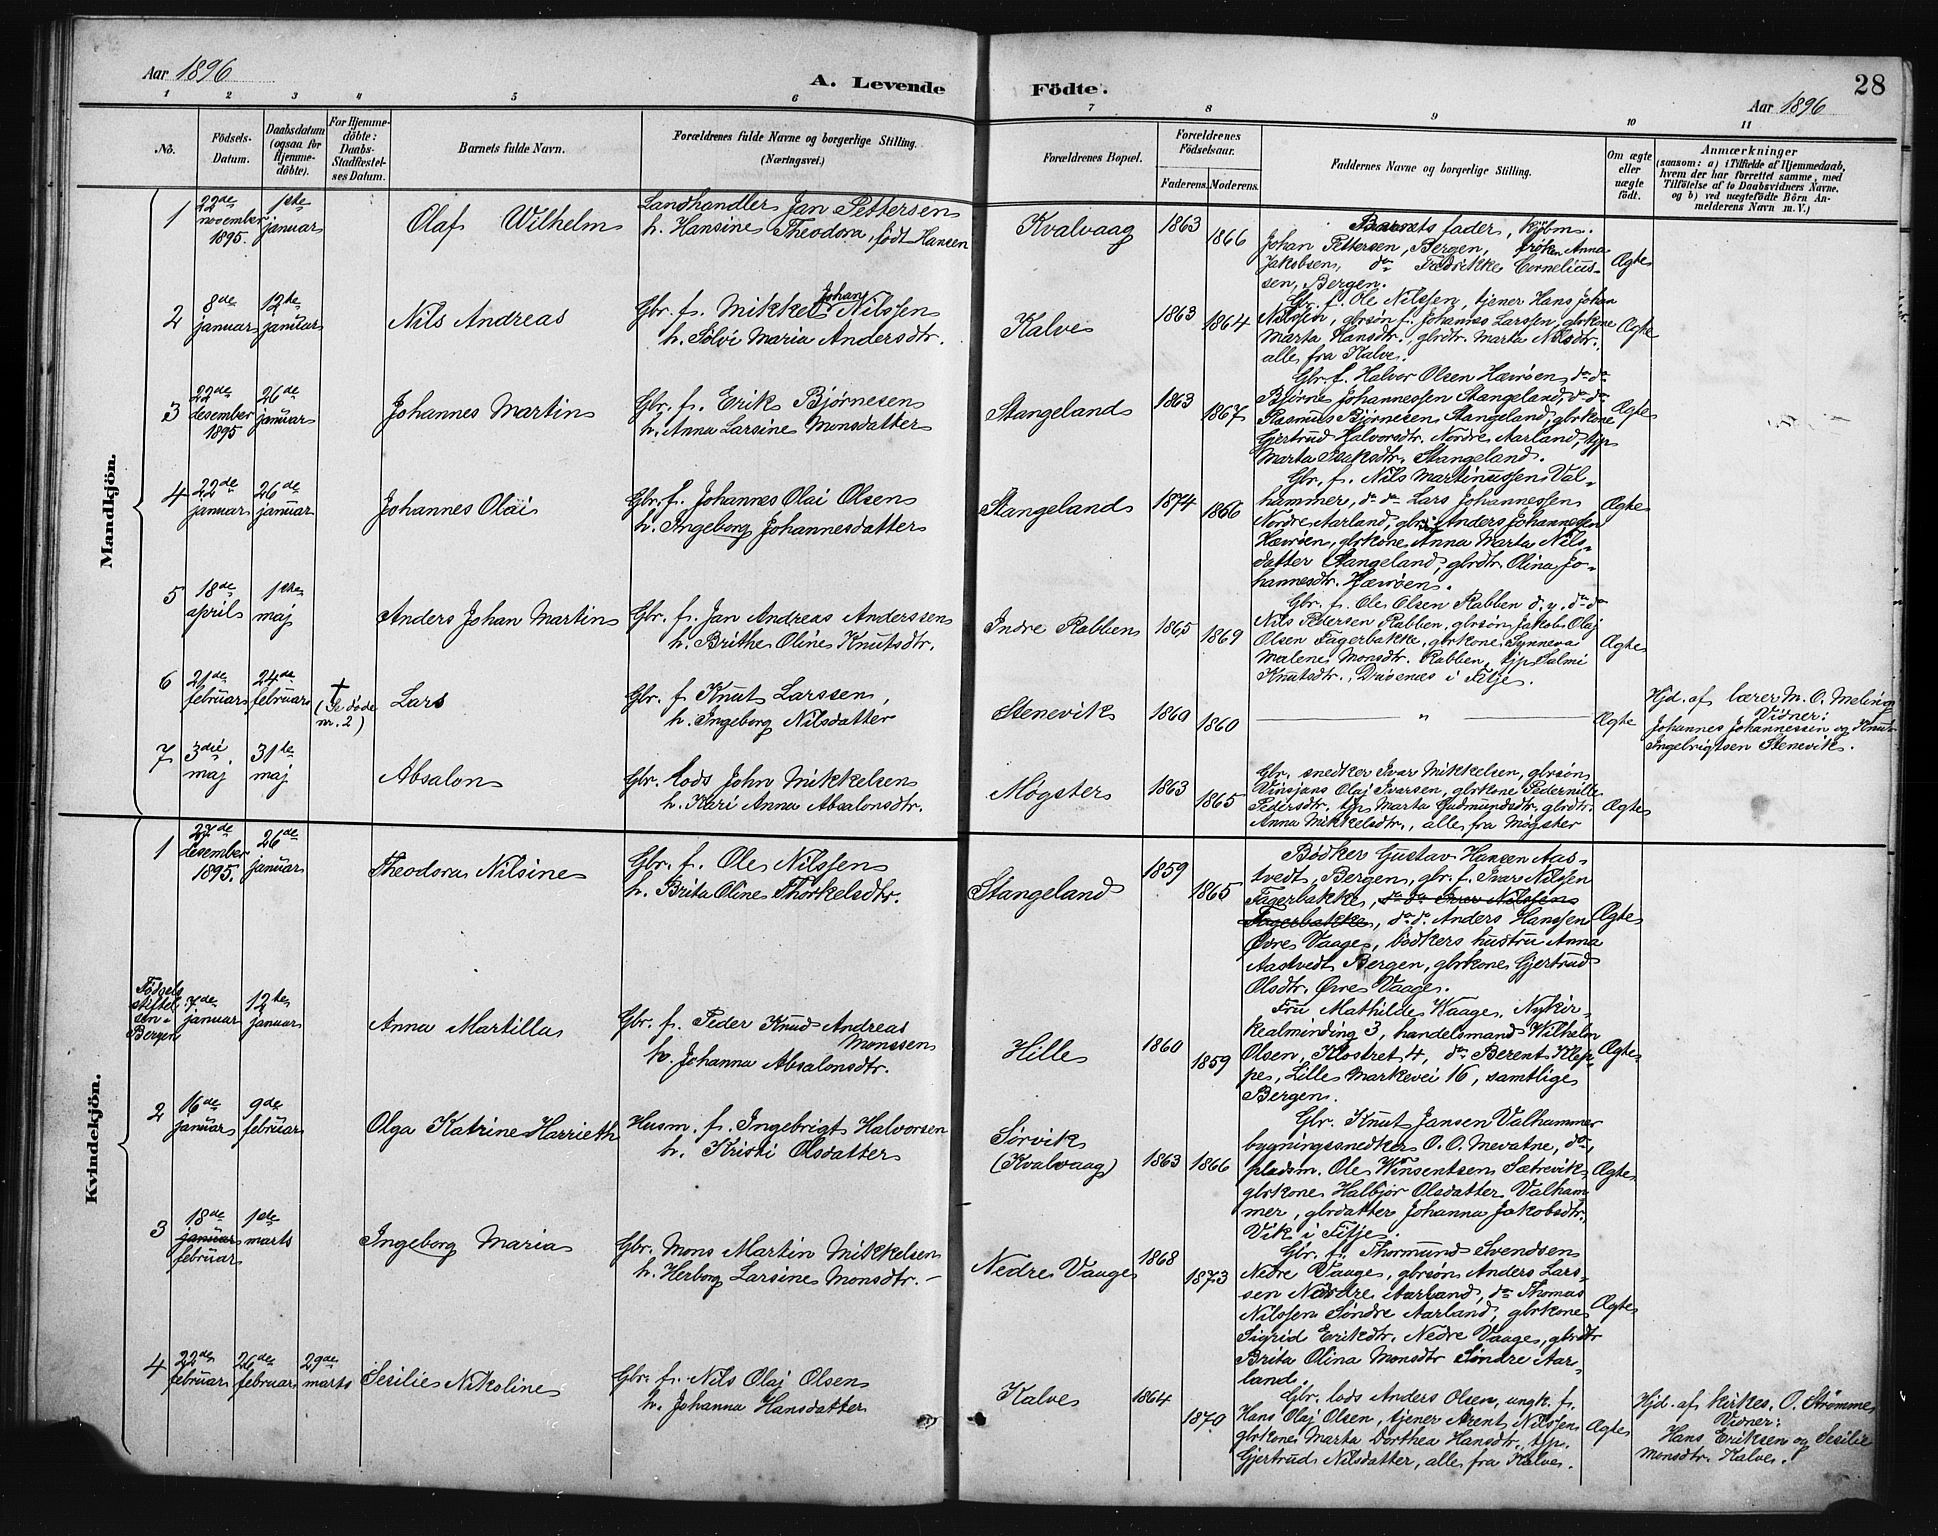 Aar 1896
A. Levende Födte.
28
Aar 1896
1 2 3 4 5 6 7 8 9 10 11
No.
Födsels-Datum.
Daabsdatum (ogsaa for Hjemme-döbte).
For Hjemme-döbte: Daabs-Stadfæstel-ses Datum.
Barnets fulde Navn.
Forældrenes fulde Navne og borgerlige Stilling. (Næringsvei.)
Forældrenes Bopæl.
Forældrenes Födselsaar.
Faderens. Moderens.
Faddernes Navne og borgerlige Stilling.
Om ægte eller uægte födt.
Anmærkninger
(saasom: a) i Tilfælde af Hjemmedaab,
hvem der har forrettet samme, med
Tilföielse af to Daabsvidners Navne,
og b) ved uægtefödte Börn An-
melderens Navn m. V.)
Mandkjön.
1 22de november 1895. 1ste januar
Olaf Wilhelm
Landhandler Jan Pettersen
h. Hansine Theodora, født Hansen
Kvalvaag 1863 1866
Barnets fader, kjøbm.
Johan Pettersen, Bergen, frøken Anna
Jakobsen, do Fredrikke Cornelius-
sen, Bergen.
Ægte
2 8de januar 12te januar
Nils Andreas
Gbr. f. Mikkel Johan Nilssen
h. Sølvi Maria Andersdtr.
Kalve 1863 1864
Gbr. f. Ole Nilssen, tjener Hans Johan
Nilssen, gbrsøn f. Johannes Larssen, gbrkone
Marta Hansdtr., gbrdtr. Marta Nilsdtr.
alle fra Kalve.
Ægte
3 22de desember 1895 26de januar
Johannes Martin
Gbr. f. Erik Bjørnesen
h. Anna Larsine Monsdatter
Stangeland 1863 1867
Gbr. f. Halvor Olsen Hævrøen, do do
Bjørne Johannessen Stangeland, do do
Rasmus Bjørnesen Stangeland, gbrkone
Gjertrud Halvorsdtr. Nordre Aarland, tjp
Marta Isaksdtr. Stangeland.
Ægte
4 22de januar 26de januar
Johannes Olai
Gbr. f. Johannes Olai Olsen
h. Ingeborg Johannesdatter
Stangeland 1874 1866
Gbr. f. Nils Martinussen Val-
hammer, do do Lars Johannessen
Nordre Aarland, gbrsøn Anders Johannessen
Hævrøen, gbrkone Anna Marta Nils-
datter Stangeland, gbrdtr. Olina Jo-
hannesdtr. Hævrøen.
Ægte
5 18de april 1ste maj
Anders Johan Martin
Gbr. f. Jan Andreas Anderssen
h. Brithe Oline Knutsdtr.
Indre Rabben 1865 1869
Gbr. f. Ole Olsen Rabben d. y. do do
Nils Pedersen Rabben, gbrsøn Jakob Olaj
Olsen Fagerbakke, gbrkone Synneva
Malene Monsdtr. Rabben, tjp Salmi
Knutsdtr., i Fitje.
Ægte
6 21de februar 24de februar † (Se døde nr. 2)
Lars
Gbr. f. Knut Larssen,
h. Ingeborg Nilsdatter
Stenevik 1860 1860
— „ —
Ægte
Hjd. af lærer M. O. Meling
Vidner:
Johannes Johannessen og Knut
Ingebrigtsen Stenevik.
7 3die maj 31te maj
Absalon
Gbr. Lods John Mikkelsen
h. Kari Anna Absalonsdtr.
Møgster 1863 1865
Gbr. snedker Ivar Mikkelsen, gbrsøn
Vinsjans Olaj Ivarsen, gbrkone Pedernille
Pedersdtr., tjp. Marta Gudmundsdtr., gbrdtr.
Anna Mikkelsdtr., alle fra Møgster
Ægte
Kvindekjön.
1 27de desember 1895. 26de januar
Theodora Nilsine
Gbr. f. Ole Nilssen
h. Brita Oline Thorkelsdtr.
Stangeland 1859 1865
Bødker Gustav Hansen Aas-
tvedt, Bergen, gbr. f. Ivar Nilssen
Fagerbakke, do do Iver Nilssen
Fagerbakke, do do Anders Hanssen
Øvre Vaage, bødkers hustru Anna
Aastvedt Bergen, gbrkone Gjertrud
Olsdtr. Øvre Vaage.
Ægte
Fødsels stiftel sen Bergen 7de januar 12te januar
Anna Martilla
Gbr. f. Peder Knud Andreas
Monssen
h. Johanna Absalonsdtr.
Hille 1860 1859
Fru Mathilde Waage, Nykir-
kealminding 3, handelsmand Wilhelm
Olsen, Klostret 4, do Berent Klep-
pe, Lille Markevei 16, samtlige
Bergen.
Ægte
2 16de januar 9de februar
Olga Katrine Harrieth
Husm. f. Ingebrigt Halvorsen
h. Kristi Olsdatter
Sørvik
(Kvalvaag) 1863 1866
Gbr. Knut Jansen Valhammer
bygningssnedker O. O. Mevatne, do,
pladsm. Ole Winsentsen Sætrevik
gbrkone Halbjør Olsdatter Valham
mer, gbrdatter Johanna Jakobsdtr.
Vik i Fitje.
Ægte
3 18de januar februar 1ste marts
Ingeborg Maria
Gbr. Mons Martin Mikkelsen
h. Herborg Larsine Monsdtr. –
Nedre Vaage 1868 1873
Gbr. f. Thormund Svendsen
Nedre Vaage, gbrsøn Anders Lars-
sen Nordre Aarland, do Thomas
Nilssen Søndre Aarland, gbrkone
Sigrid Erikdtr. Nedre Vaage, gbrdtr
Brita Olina Monsdtr Søndre Aar-
land.
Ægte
4 22de februar 26de februar 29de marts
Sesilie Nikoline
Gbr. f. Nils Olaj Olsen
h. Johanna Hansdatter
Kalve 1864 1870
Gbr. lods Anders Olsen, ungk. f.
Hans Olaj Olsen, tjener Arent Nilssen
gbrkone Marta Dorthea Hansdtr., tjp.
Gjertrud Nilsdatter, alle fra Kalve.
Ægte
Hjd. af kirkes. O. Strømme
Vidner:
Hans Eriksen og Sesilie
Monsdtr. Kalve.